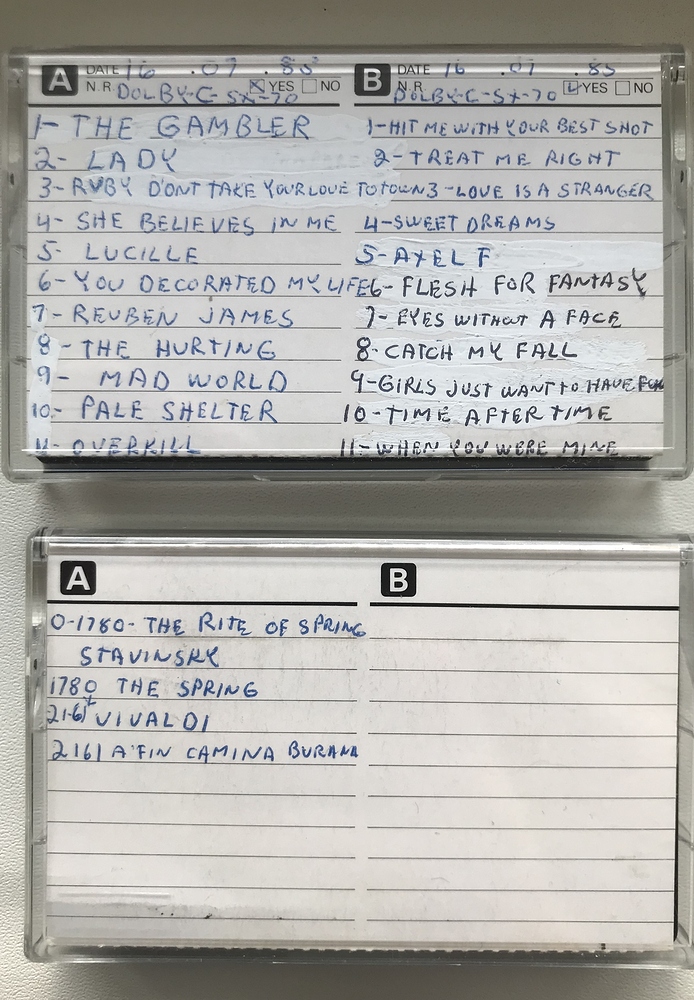 A DATE 16 . 07 . 85
N.R. YES NO
DOLBY-C-SX-70
1- THE GAMBLER
2- LADY
3- RUBY D'ONT TAKE YOUR LOVE TO TOWN
4- SHE BELIEVES IN ME
5- LUCILLE
6- YOU DECORATED MY LIFE
7- REUBEN JAMES
8- THE HURTING
9- MAD WORLD
10- PALE SHELTER
11- OVERKILL
B DATE 16 . 07 . 85
N.R. YES NO
DOLBY-C-SX-70
1-HIT ME WITH YOUR BEST SHOT
2-TREAT ME RIGHT
3-LOVE IS A STRANGER
4-SWEET DREAMS
5-AXEL F
6- FLESH FOR FANTASY
7- EYES WITHOUT A FACE
8-CATCH MY FALL
9-GIRLS JUST WANT TO HAVE FUN
10-TIME AFTER TIME
11-WHEN YOU WERE MINE
A
0-1780- THE RITE OF SPRING
STAVINSKY
1780 THE SPRING
2161 VIVALDI
2161 A'FIN CAMINA BURANA
B